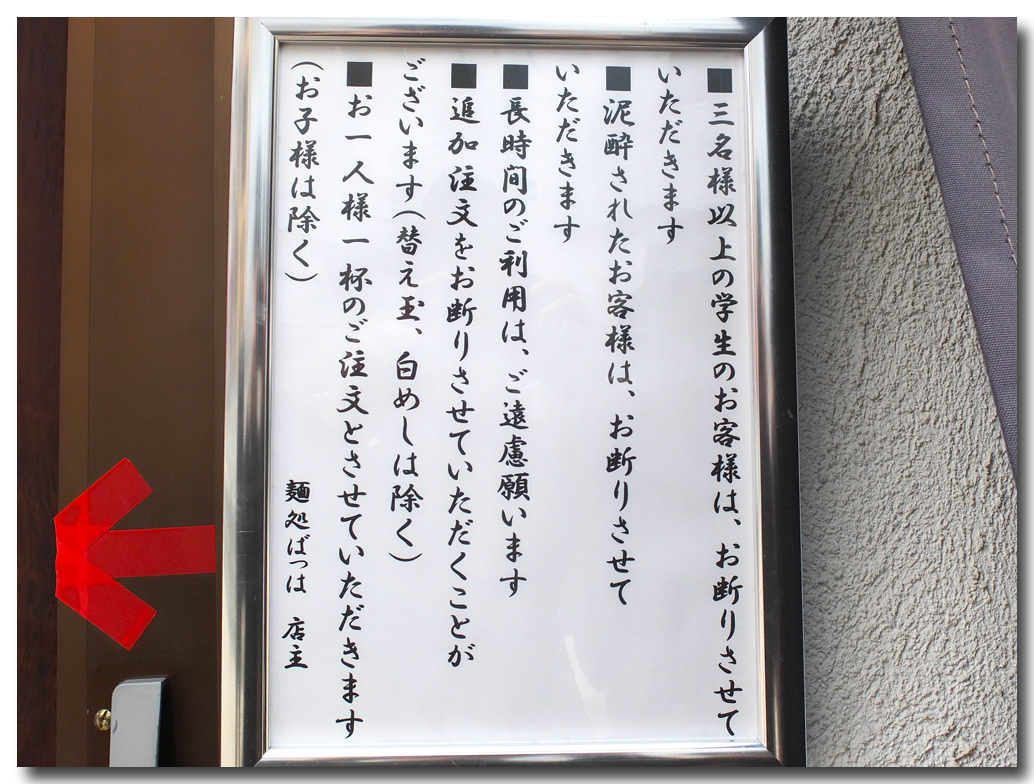 ■三名様以上の学生のお客様は、お断りさせて
いただきます
■泥酔されたお客様は、お断りさせて
いただきます
■長時間のご利用は、ご遠慮願います
■追加注文をお断りさせていただくことが
ございます(替え玉、白めしは除く)
■お一人様一杯のご注文とさせていただきます
(お子様は除く)
麺処ばっは 店主